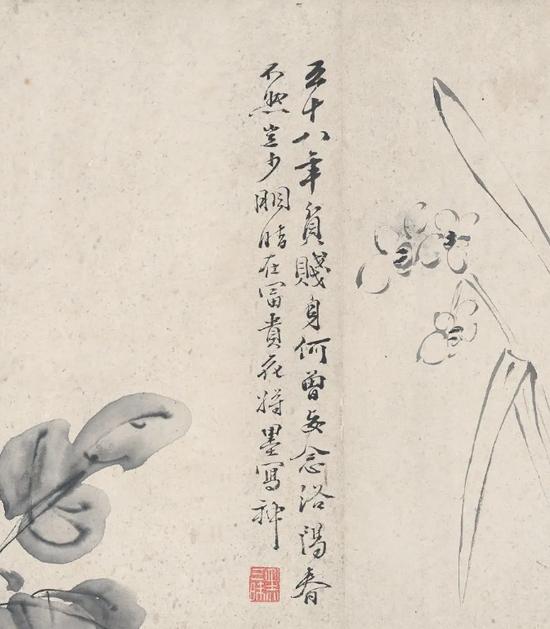 五十八年貧賤身何曾妄念洛陽春
不然豈少胭脂在富貴花將墨寫神